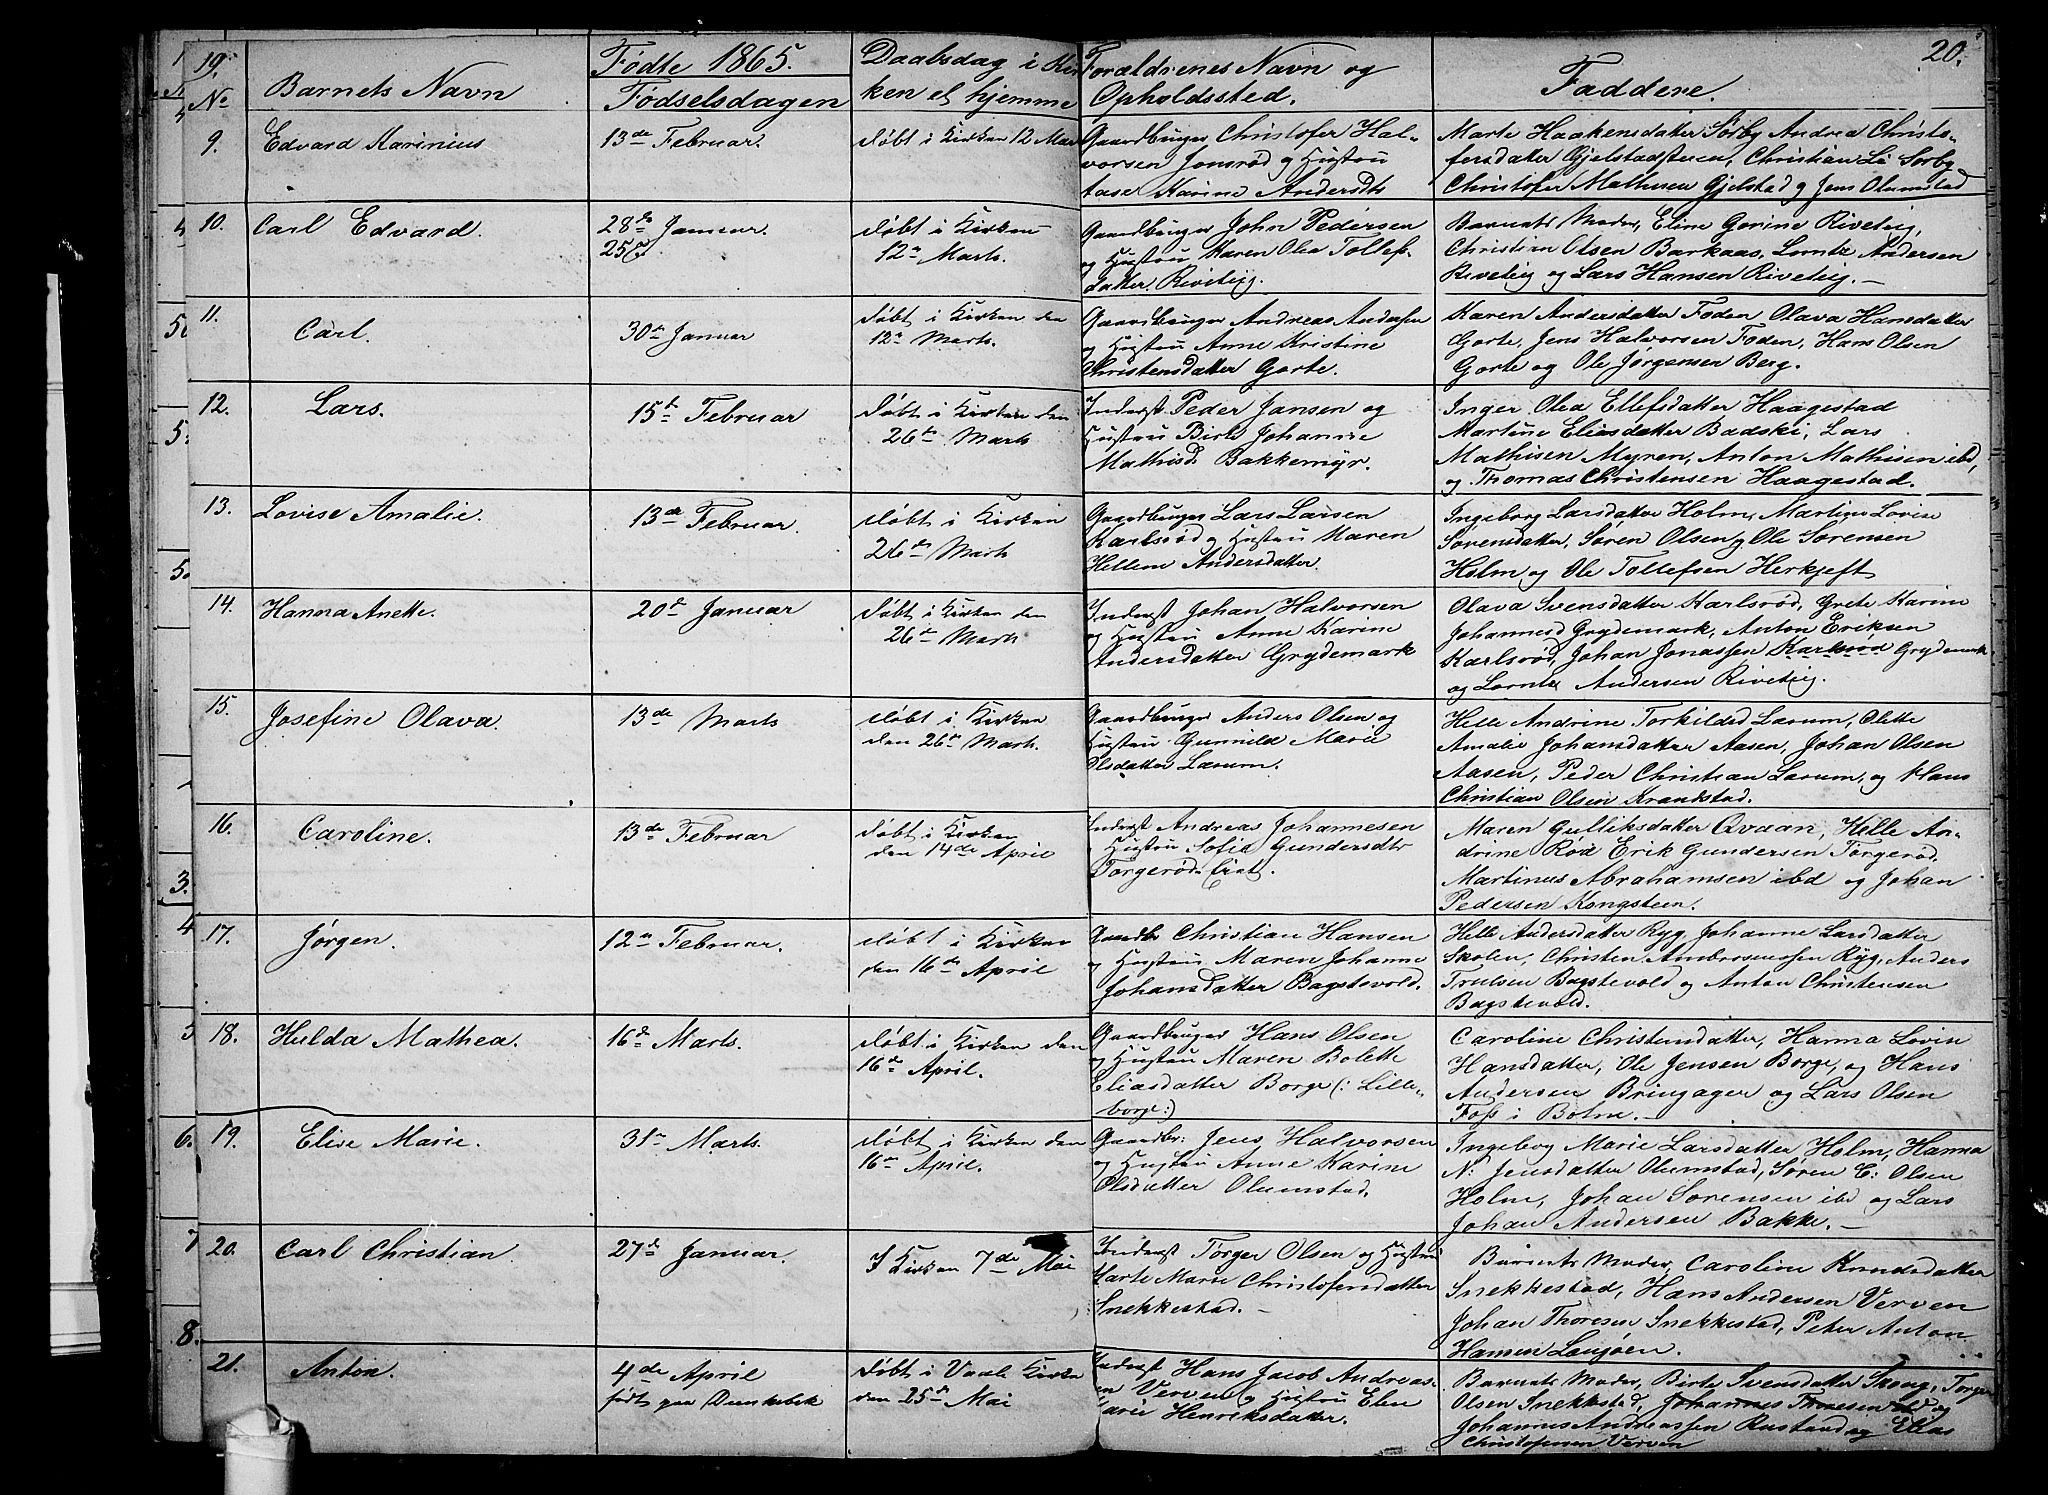 19. Barnets Navn Fødte 1865. Daabsdag i Kir Forældrenes Navn og Faddere. 20.
No Fødselsdagen ken el hjemme Opholdssted.
9. Edvard Karinius 13de Februar. døbt i Kirken 12 Mar Gaardbruger Christofer Hal- Marte Haakensdatter Sørby Andrea Christo-
vorsen Jonsrød og Hustru fersdatter Gjelstadsteen, Christian Li Sørby
Karine Andersdtr Christofer Mathisen Gjelstad og Jens Olumstad
10. Carl Edvard. 28de Januar. døbt i Kirken Gaardbruger John Pedersen Barnets Moder, Eline Gorine Riveteig,
25 12te Marts. og Hustru Maren Olea Tollefs- Christian Olsen Barkaas, Lorntz Andersen
datter. Riveteig. Riveteig og Lars Hansen Riveteig. —
11. Carl. 30te Januar døbt i Kirken den Gaardbruger Andreas Andersen Karen Andersdatter Foden Olava Hansdatter
12te Marts. og Hustru Anne Kristine Gorte, Jens Halvorsen Foden, Hans Olsen
Christensdatter Gorte. Gorte og Ole Jørgensen Berg.
12. Lars. 15de Februar døbt i Kirken den Inderst Peder Jansen og Inger Olea Ellefsdatter Haagestad
26te Marts Hustru Birte Johanne Martine Eliasdatter Badski, Lars
Mathisd. Bakkemyr. Mathisen Myren, Anton Mathisen ibd,
og Thomas Christensen Haagestad.
13. Lovise Amalie. 13de Februar. døbt i Kirken Gaardbruger Lars Larsen Ingeborg Larsdatter Holm, Martine Lovise
26de Marts Karlsrød og Hustru Maren Sørensdatter, Søren Olsen og Ole Sørensen
Hellene Andersdatter. Holm og Ole Tollefsen Herkjeft
14. Hanna Anette. 20de Januar døbt i Kirken den Inderst Johan Halvorsen Olava Svensdatter Karlsrød, Grete Karine
26te Marts og Hustru Anne Karine Johannesd Grydemark, Anton Eriksen
Andersdatter Grydemark Karlsrød, Johan Jonassen Karlsrød Grydemark
og Lorntz Andersen Riveteig.
15. Josefine Olava. 13de Marts døbt i Kirken Gaardbruger Anders Olsen og Helle Andrine Torkildsd Lærum, Olette
den 26te Marts. Hustru Gunnild Marie Amalie Johansdatter Aasen, Johan Olsen
Olsdatter Lærum. Aasen, Peder Christian Lærum, og Hans
Christian Olsen Krandstad.
16. Caroline. 13de Februar døbt i Kirken Inderst Andreas Johannesen Maren Gulliksdatter Qvaan, Helle An-
den 14de April Hustru Sofie Gundersdtr drine Rød Erik Gundersen Torgerød.
Torgerød. Martinus Abrahamsen ibd og Johan
Pedersen Kongsteen.
17. Jørgen. 12te Februar. døbt i Kirken Gaardbr Christian Hansen Helle Andersdatter Ryg, Johanne Larsdatter
den 16de April og Hustru Maren Johanne Skolen, Christen Ambrosiussen Ryg, Anders
Johansdatter Bagstevold. Trulsen Bagstevold og Anton Christensen
Bagstevold.
18. Hulda Mathea. 16de Marts. døbt i Kirken den Gaardbruger Hans Olsen Caroline Christensdatter, Hanna Lovise
16de April. og Hustru Maren Bolette Hansdatter, Ole Jensen Borge, og Hans
Eliasdatter Borge (: Lille- Andersen Bringager og Lars Olsen
borge:) Foss i Botne. —
19. Elise Marie. 31te Marts. døbt i Kirken den Gaardbr: Jens Halvorsen Ingeborg Marie Larsdatter Holm, Hanna
16de April. og Hustru Anne Karine N: Jensdatter Olumstad, Søren E: Olsen
Olsdatter Olumstad. Holm, Johan Sørensen ibd og Lars
Johan Andersen Bakke. —
20. Carl Christian 27de Januar. I Kirken 7de Mai Inderst Torger Olsen og Hustru Barnets Moder, Caroline Knudsdatter
Marte Marie Christofersdatter Snekkestad, Hans Andersen Verven
Snekkestad. — Johan Thoresen Snekkestad, Peter Anton
Hansen Langøen.
21. Anton. 4de April døbt i Vaale Kirke Inderst Hans Jacob Andreas- Barnets Moder, Birte Svensdatter Skong, Torger
født paa den 25de Mai en Verven og Hustru Elen Olsen Snekkestad, Johannes Thoresen ibd og
Marie Henriksdatter. Johannes Andreassen Rustand og Elias
Christophersen Verven